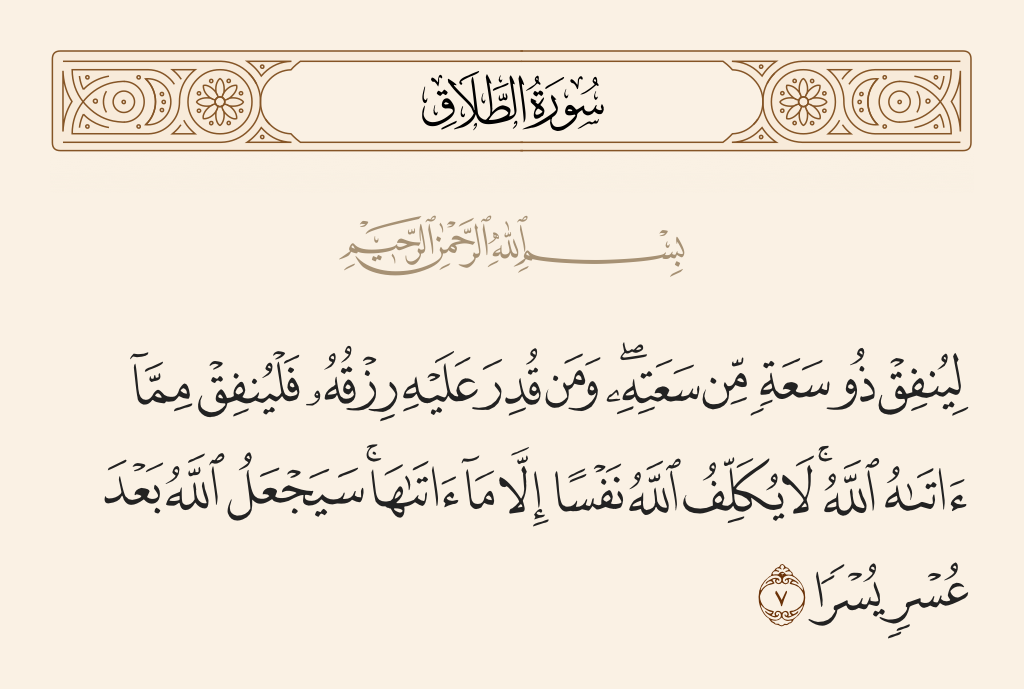 سُورَةُ الطَّلَاقِ
بِسْمِ ٱللَّهِ ٱلرَّحْمَٰنِ ٱلرَّحِيمِ
لِيُنفِقْ ذُو سَعَةٍ مِّن سَعَتِهِۦ ۖ وَمَن قُدِرَ عَلَيْهِ رِزْقُهُۥ فَلْيُنفِقْ مِمَّآ
ءَاتَىٰهُ ٱللَّهُ ۚ لَا يُكَلِّفُ ٱللَّهُ نَفْسًا إِلَّا مَآ ءَاتَىٰهَا ۚ سَيَجْعَلُ ٱللَّهُ بَعْدَ
عُسْرٍ يُسْرًا ٧